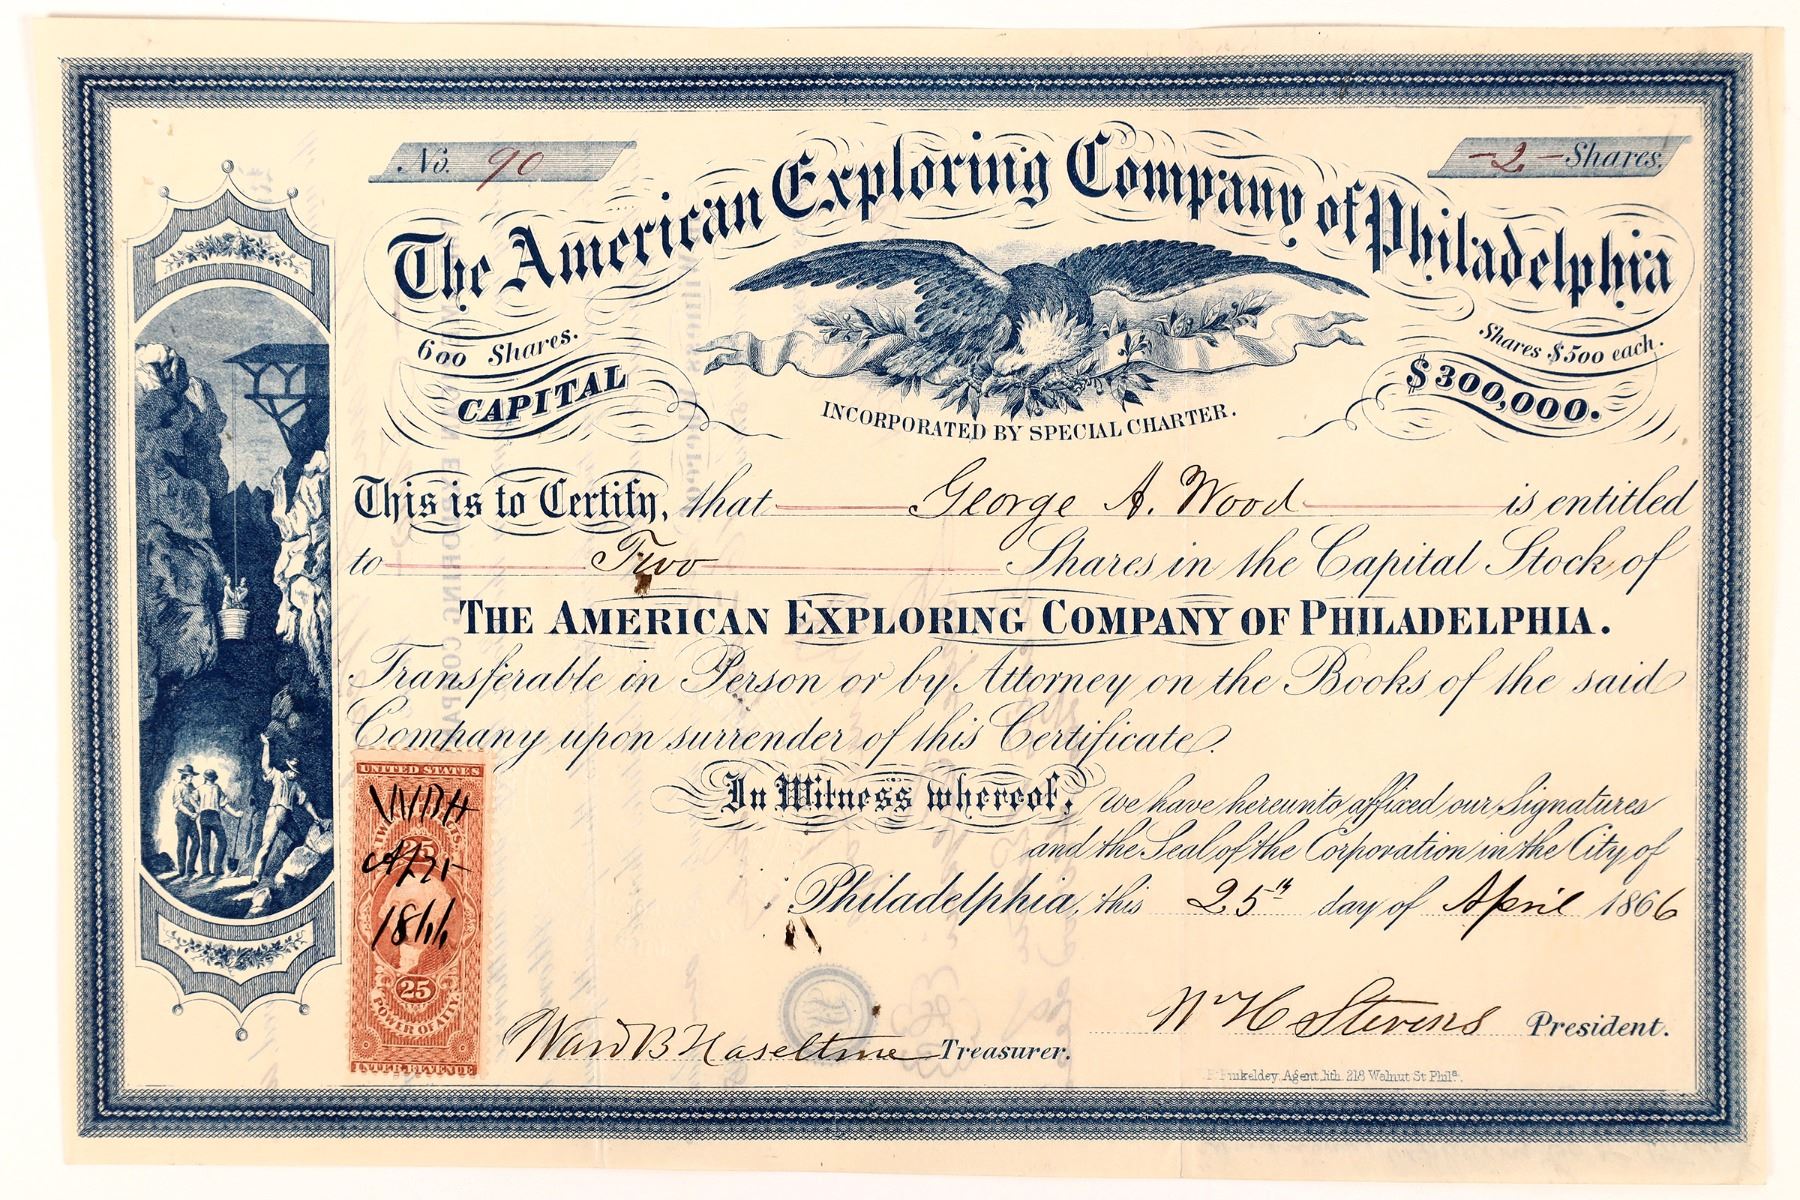 No. 90
-2- Shares.
The American Exploring Company of Philadelphia
600 Shares.
Shares $500 each.
CAPITAL
$300,000.
INCORPORATED BY SPECIAL CHARTER.
This is to Certify, that George A. Wood is entitled
to Two Shares in the Capital Stock of
THE AMERICAN EXPLORING COMPANY OF PHILADELPHIA.
Transferable in Person or by Attorney on the Books of the said
Company upon surrender of this Certificate.
In Witness whereof, we have hereunto affixed our Signatures
and the Seal of the Corporation in the City of
Philadelphia, this 25th day of April 1866
UNITED STATES
WBH
25
1866
25
POWER OF ATT'Y
INTER. REVENUE
Ward B Haseltine Treasurer.
W H Stevens President.
Agent, lith. 218 Walnut St Phila.